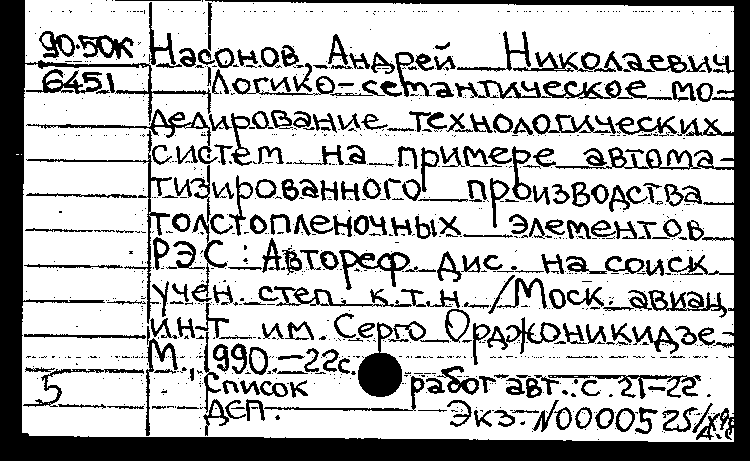 90-50К Насонов, Андрей Николаевич
6451 Логико-семантическое мо-
делирование технологических
систем на примере автома-
тизированного производства
толстопленочных элементов
РЭС: Автореф. дис. на соиск.
учен. степ. к.т.н. /Моск. авиац.
ин-т им. Серго Орджоникидзе-
М., 1990.-22с.
5 Список работ авт.: с. 21-22.
ДСП. Экз. N000052